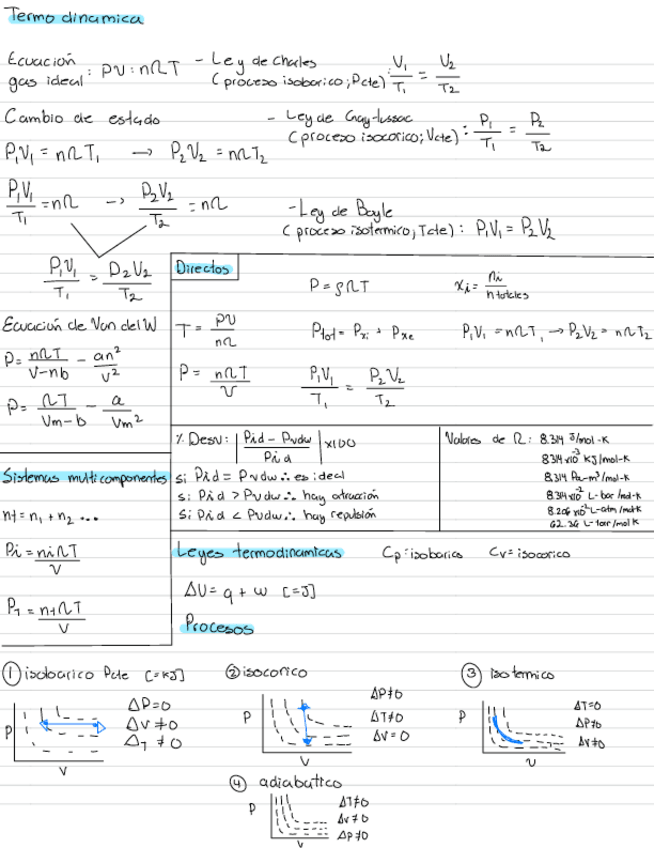 Termodinamica
Ecuación gas ideal : PV = nRT
- Ley de Charles (proceso isobarico; Pcte) : V₁/T₁ = V₂/T₂
Cambio de estado
- Ley de Gay-lussac (proceso isocorico; Vcte) : P₁/T₁ = P₂/T₂
P₁V₁ = nRT₁ → P₂V₂ = nRT₂
P₁V₁/T₁ = nR -> P₂V₂/T₂ = nR
- Ley de Boyle (proceso isotermico; Tcte) : P₁V₁ = P₂V₂
P₁V₁/T₁ = P₂V₂/T₂
Ecuación de Van del W
P = nRT/V-nb - an²/V²
P = RT/Vm-b - a/Vm²
Directos
P = ρRT
xi = ni/ntotales
T = PV/nR
Ptot = Pxi + Pxe
P₁V₁ = nRT₁ → P₂V₂ = nRT₂
P = nRT/V
P₁V₁/T₁ = P₂V₂/T₂
% Desv: |Pid - Pvdw/Pid| x100
si Pid = Pvdw ∴ es ideal
si Pid > Pvdw ∴ hay atracción
si Pid < Pvdw ∴ hay repulsión
Valores de R: 8.314 J/mol-K
8.314x10⁻³ KJ/mol-K
8.314 Pa-m³/mol-K
8.314x10⁻² L-bar/mol-K
8.206x10⁻² L-atm/mol-K
62.36 L-torr/mol K
Sistemas multicomponentes
nt = n₁ + n₂ ...
Pi = niRT/V
PT = ntRT/V
Leyes termodinamicas
Cp = isobarico
Cv = isocorico
ΔU = q + w [=J]
Procesos
① isobarico Pcte [=KJ]
P
V
ΔP=0
ΔV≠0
ΔT≠0
② isocorico
P
V
ΔP≠0
ΔT≠0
ΔV=0
③ isotermico
P
V
ΔT=0
ΔP≠0
ΔV≠0
④ adiabatico
P
V
ΔT≠0
ΔV≠0
ΔP≠0